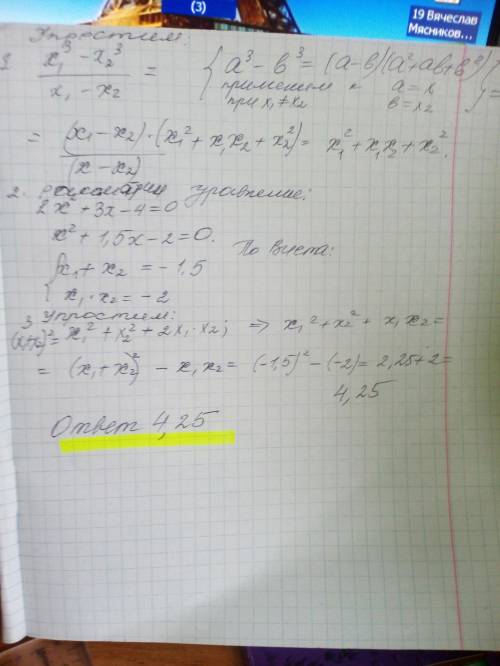 (3)
19 Вячеслав
Мясников...
Упростим:
x₁³ - x₂³ / x₁ - x₂ = { a³ - в³ = (a-в)(a²+ав+в²)
применяем к a = x
при x₁ ≠ x₂ в = x₂ } =
= (x₁ - x₂) · (x₁² + x₁x₂ + x₂²) / (x - x₂) = x₁² + x₁x₂ + x₂².
2. рассмотрим уравнение:
2x² + 3x - 4 = 0
x² + 1,5x - 2 = 0. По Виета:
{ x₁ + x₂ = -1,5
x₁ · x₂ = -2
3. Упростим:
(x₁+x₂)² = x₁² + x₂² + 2x₁ · x₂; ⇒ x₁² + x₂² + x₁x₂ =
= (x₁ + x₂)² - x₁x₂ = (-1,5)² - (-2) = 2,25 + 2 =
4,25
Ответ 4,25